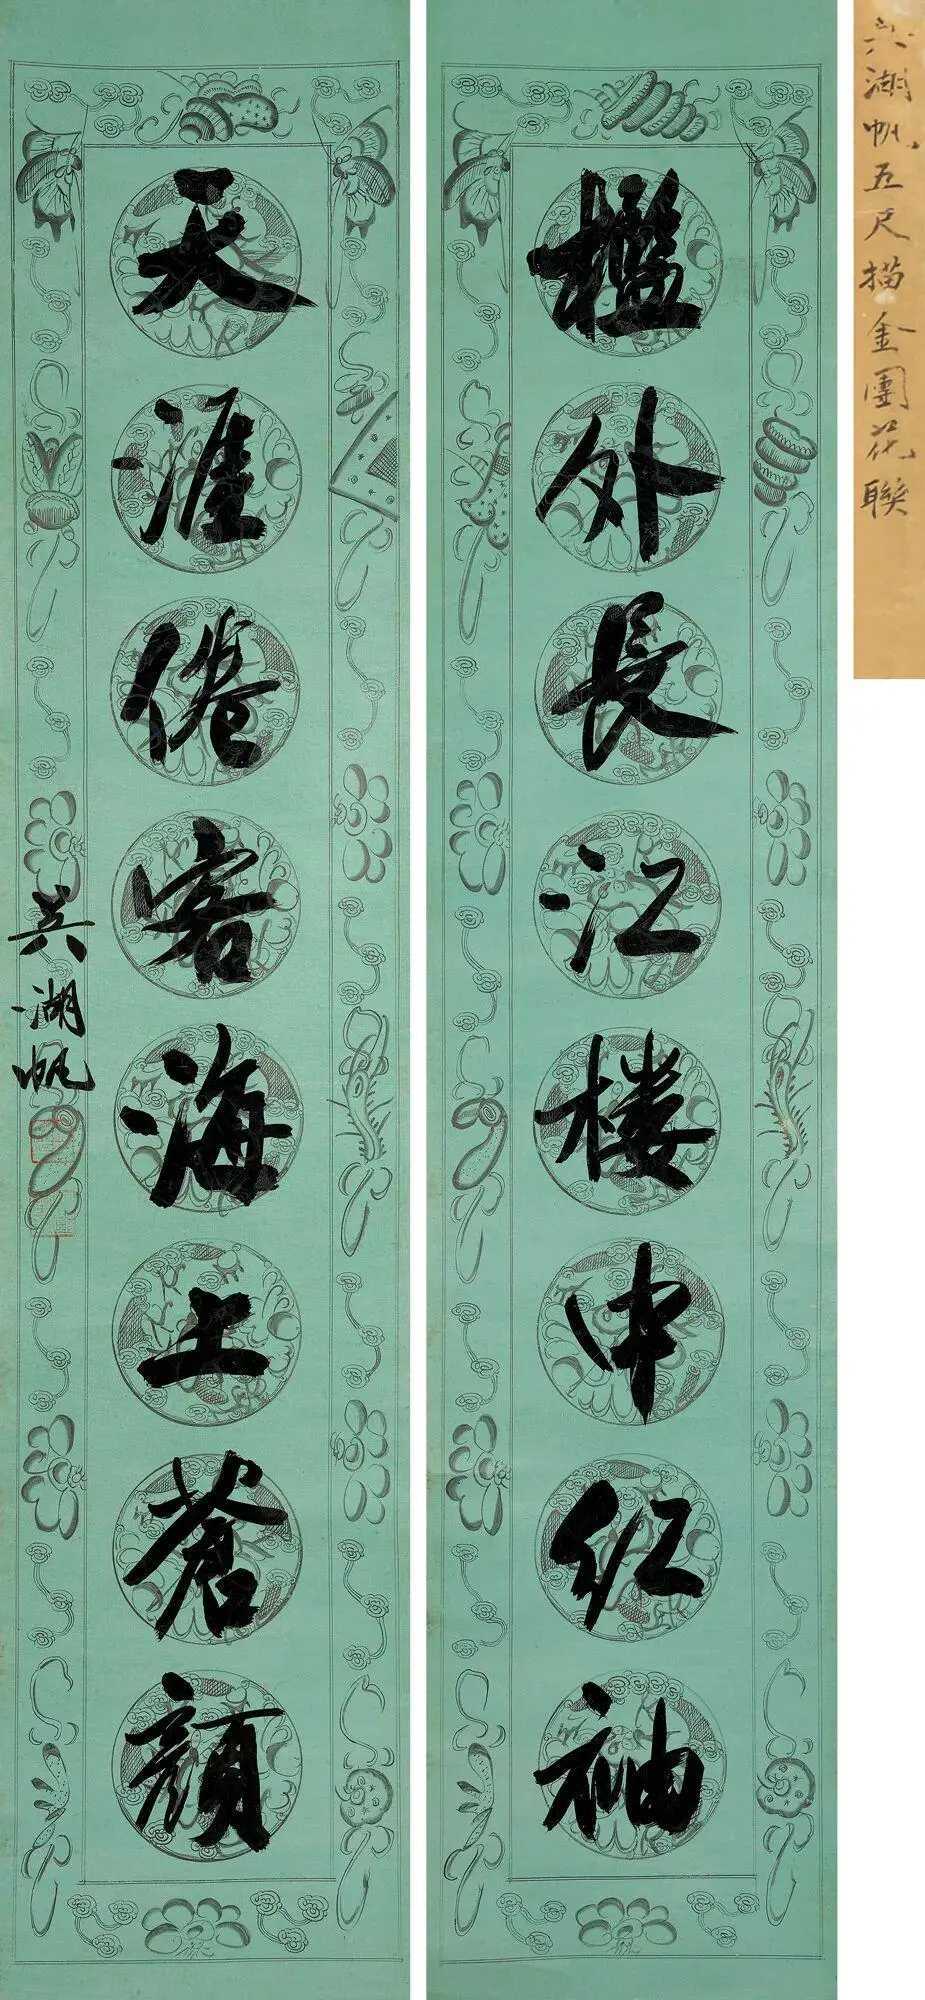 檻外長江楼中红袖
天涯倦客海上蒼顔
吴湖帆
吴湖帆五尺描金團花聯